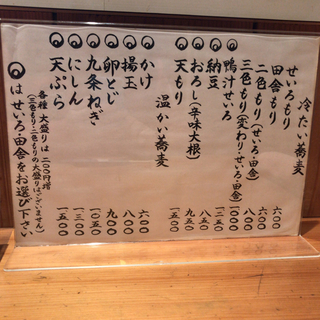 冷たい蕎麦
せいろもり 六〇〇
田舎もり 六〇〇
二色もり(せいろ・田舎) 八〇〇
三色もり(変わり・せいろ・田舎) 一〇〇〇
◉鴨汁せいろ 一二五〇
◉納豆 八五〇
◉おろし(辛味大根) 八五〇
◉天もり 一五〇〇
温かい蕎麦
◉かけ 六〇〇
◉揚玉 八〇〇
◉卵とじ 九〇〇
◉九条ねぎ 一〇五〇
◉にしん 一三〇〇
◉天ぷら 一五〇〇
各種 大盛りは二〇〇円増
(三色もり・二色もりの大盛りはございません)
◉はせいろ・田舎をお選び下さい